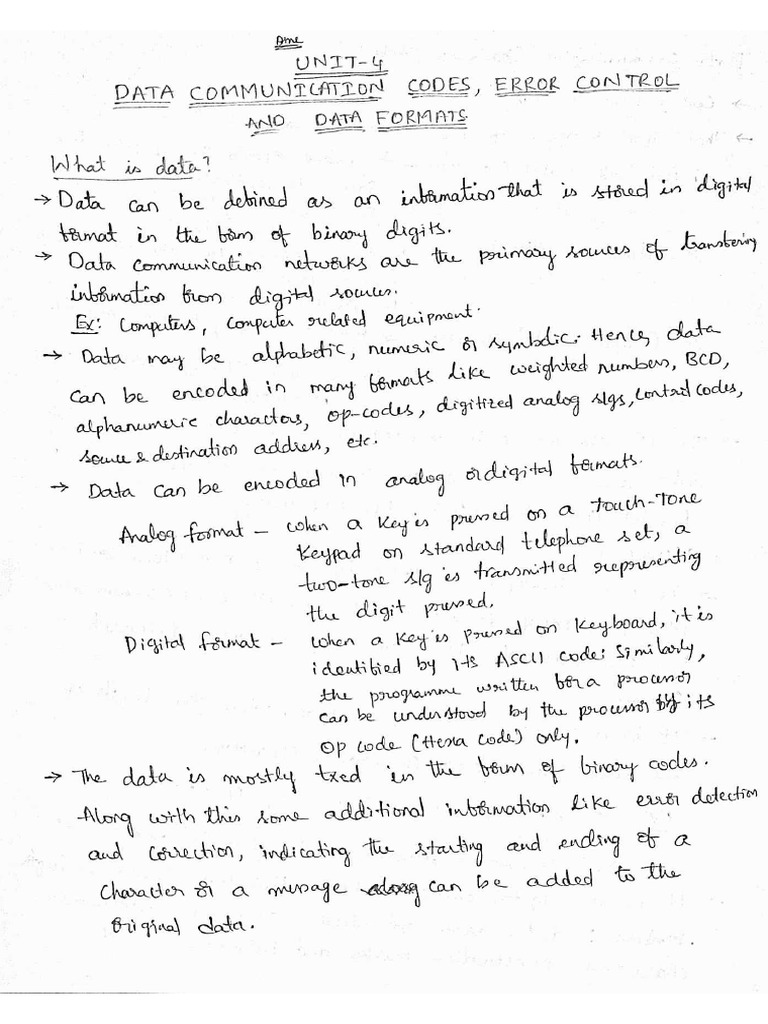 UNIT-4
DATA COMMUNICATION CODES, ERROR CONTROL
AND DATA FORMATS
What is data?
→ Data can be defined as an information that is stored in digital
format in the form of binary digits.
→ Data communication networks are the primary sources of transfering
information from digital sources.
Ex: Computers, computer related equipment.
→ Data may be alphabetic, numeric or symbolic. Hence, data
can be encoded in many formats like weighted numbers, BCD,
alphanumeric charactors, op-codes, digitized analog slgs, control codes,
source & destination address, etc.
→ Data can be encoded in analog or digital formats.
Analog format - when a key is pressed on a touch-tone
keypad on standard telephone set, a
two-tone slg is transmitted representing
the digit pressed.
Digital format - when a key is pressed on keyboard, it is
identified by its ASCII code. Similarly,
the programme written for a processor
can be understood by the processor by its
op code (Hexa code) only.
→ The data is mostly txed in the form of binary codes.
Along with this some additional information like error detection
and correction, indicating the starting and ending of a
character or a message can be added to the
original data.